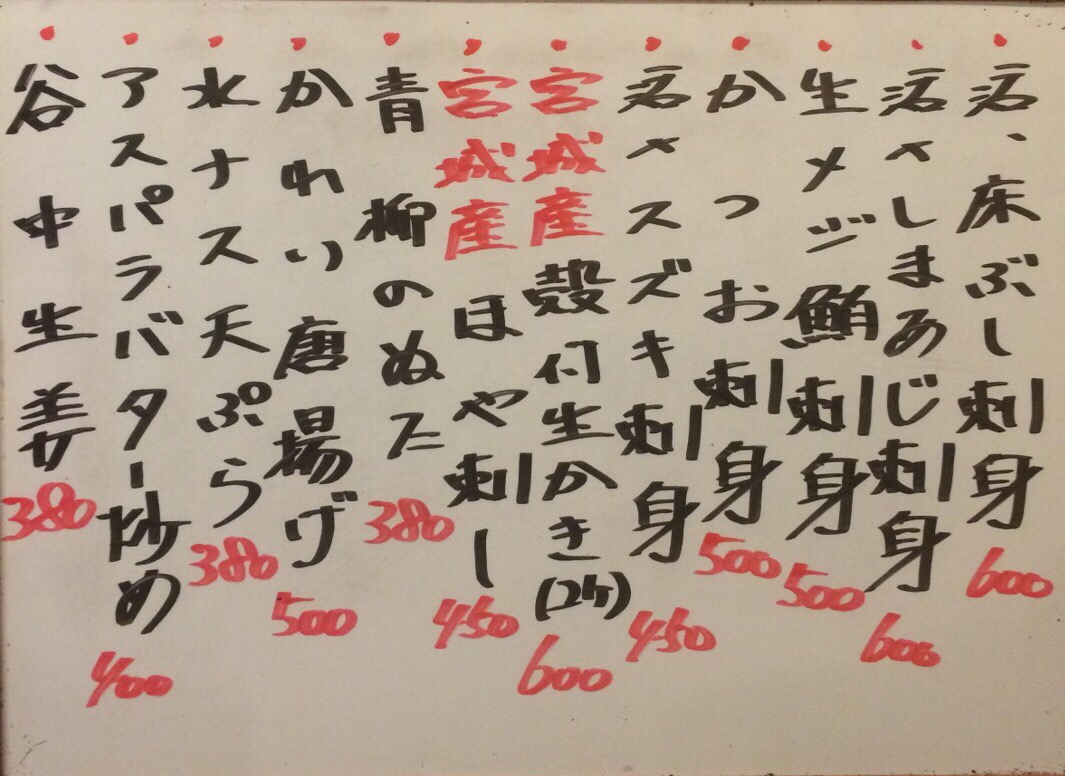 活、床ぶし刺身 600
活〆しまあじ刺身 600
生メジ鮪刺身 500
かつお刺身 500
活〆スズキ刺身 450
宮城産殻付生かき(2ヶ) 600
宮城産ほや刺し 450
青柳のぬた 380
かれい唐揚げ 500
水ナス天ぷら 380
アスパラバター炒め 400
谷中生姜 380